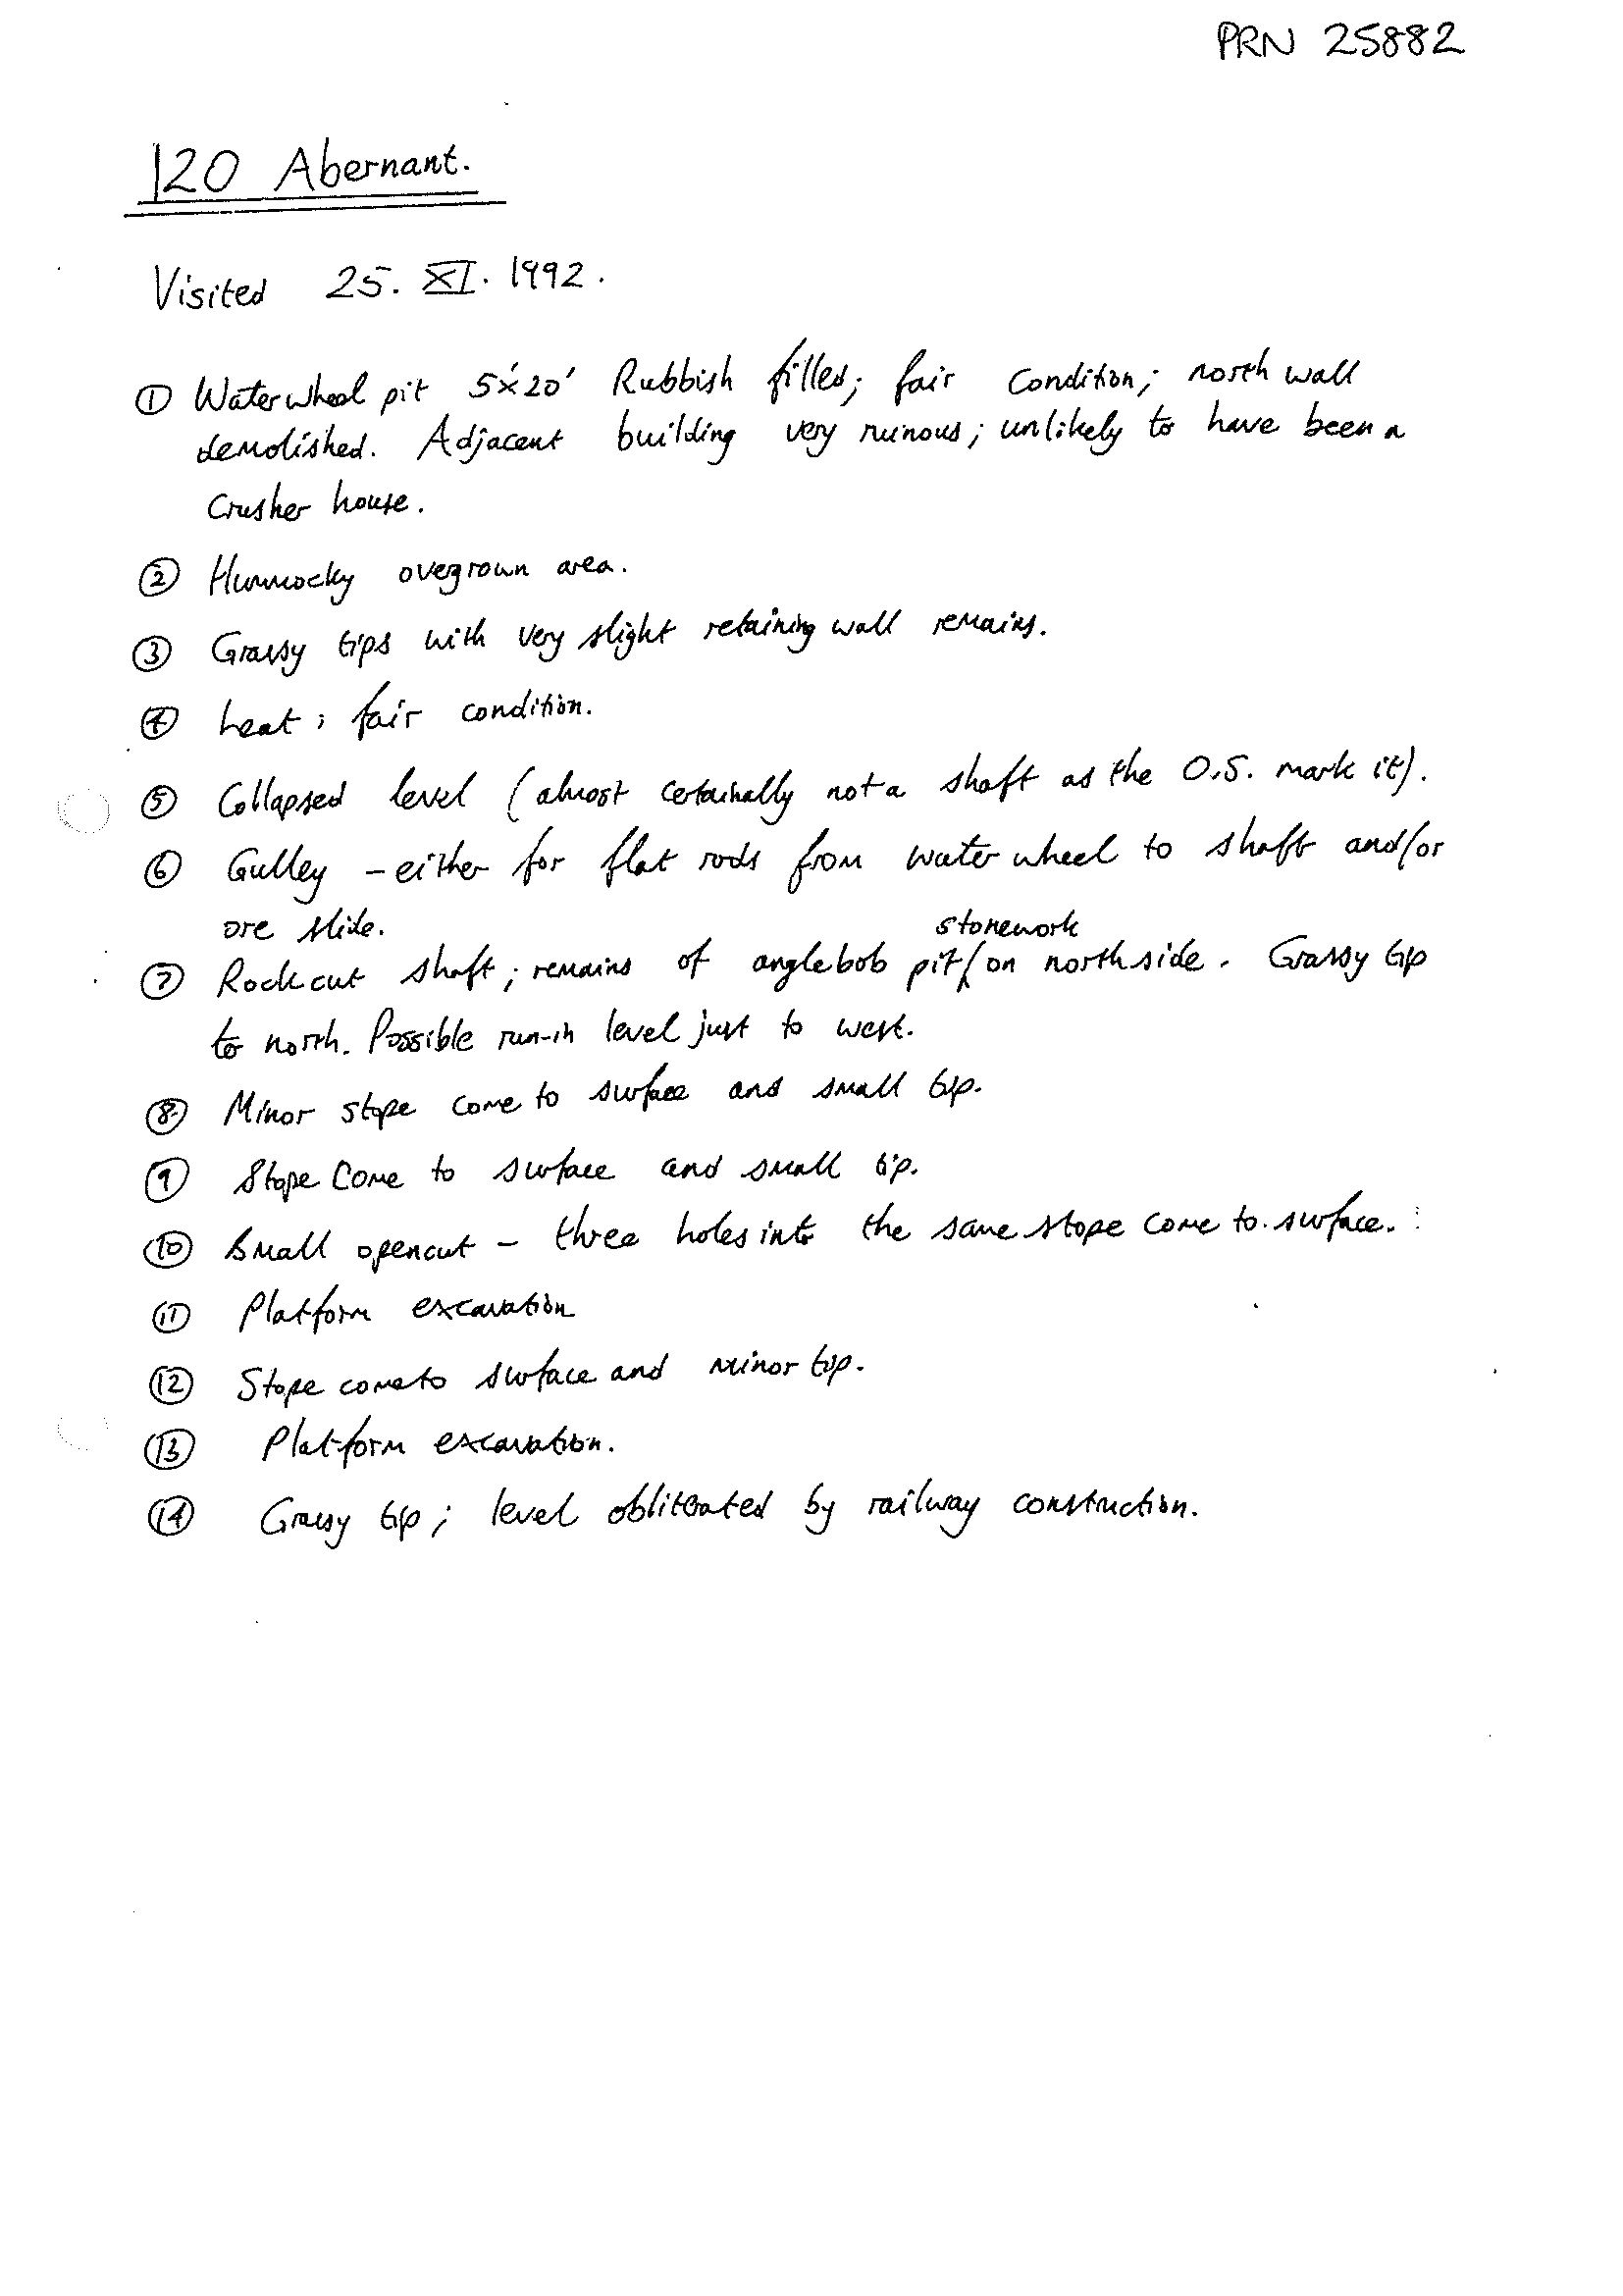 PRN 25882
120 Abernant.
Visited 25. XI. 1992.
① Waterwheel pit 5'x20' Rubbish filled; fair condition; north wall
demolished. Adjacent building very ruinous; unlikely to have been a
crusher house.
② Hummocky overgrown area.
③ Grassy tips with very slight retaining wall remains.
④ Leat; fair condition.
⑤ Collapsed level (almost certainally not a shaft as the O.S. mark it).
⑥ Gulley - either for flat rods from water wheel to shaft and/or
ore slide.
stonework
⑦ Rock cut shaft; remains of anglebob pit/ on north side. Grassy tip
to north. Possible run-in level just to west.
⑧ Minor stope come to surface and small tip.
⑨ Stope come to surface and small tip.
⑩ Small opencut - three holes into the same stope come to surface.
⑪ Platform excavation
⑫ Stope come to surface and minor tip.
⑬ Platform excavation.
⑭ Grassy tip; level obliterated by railway construction.